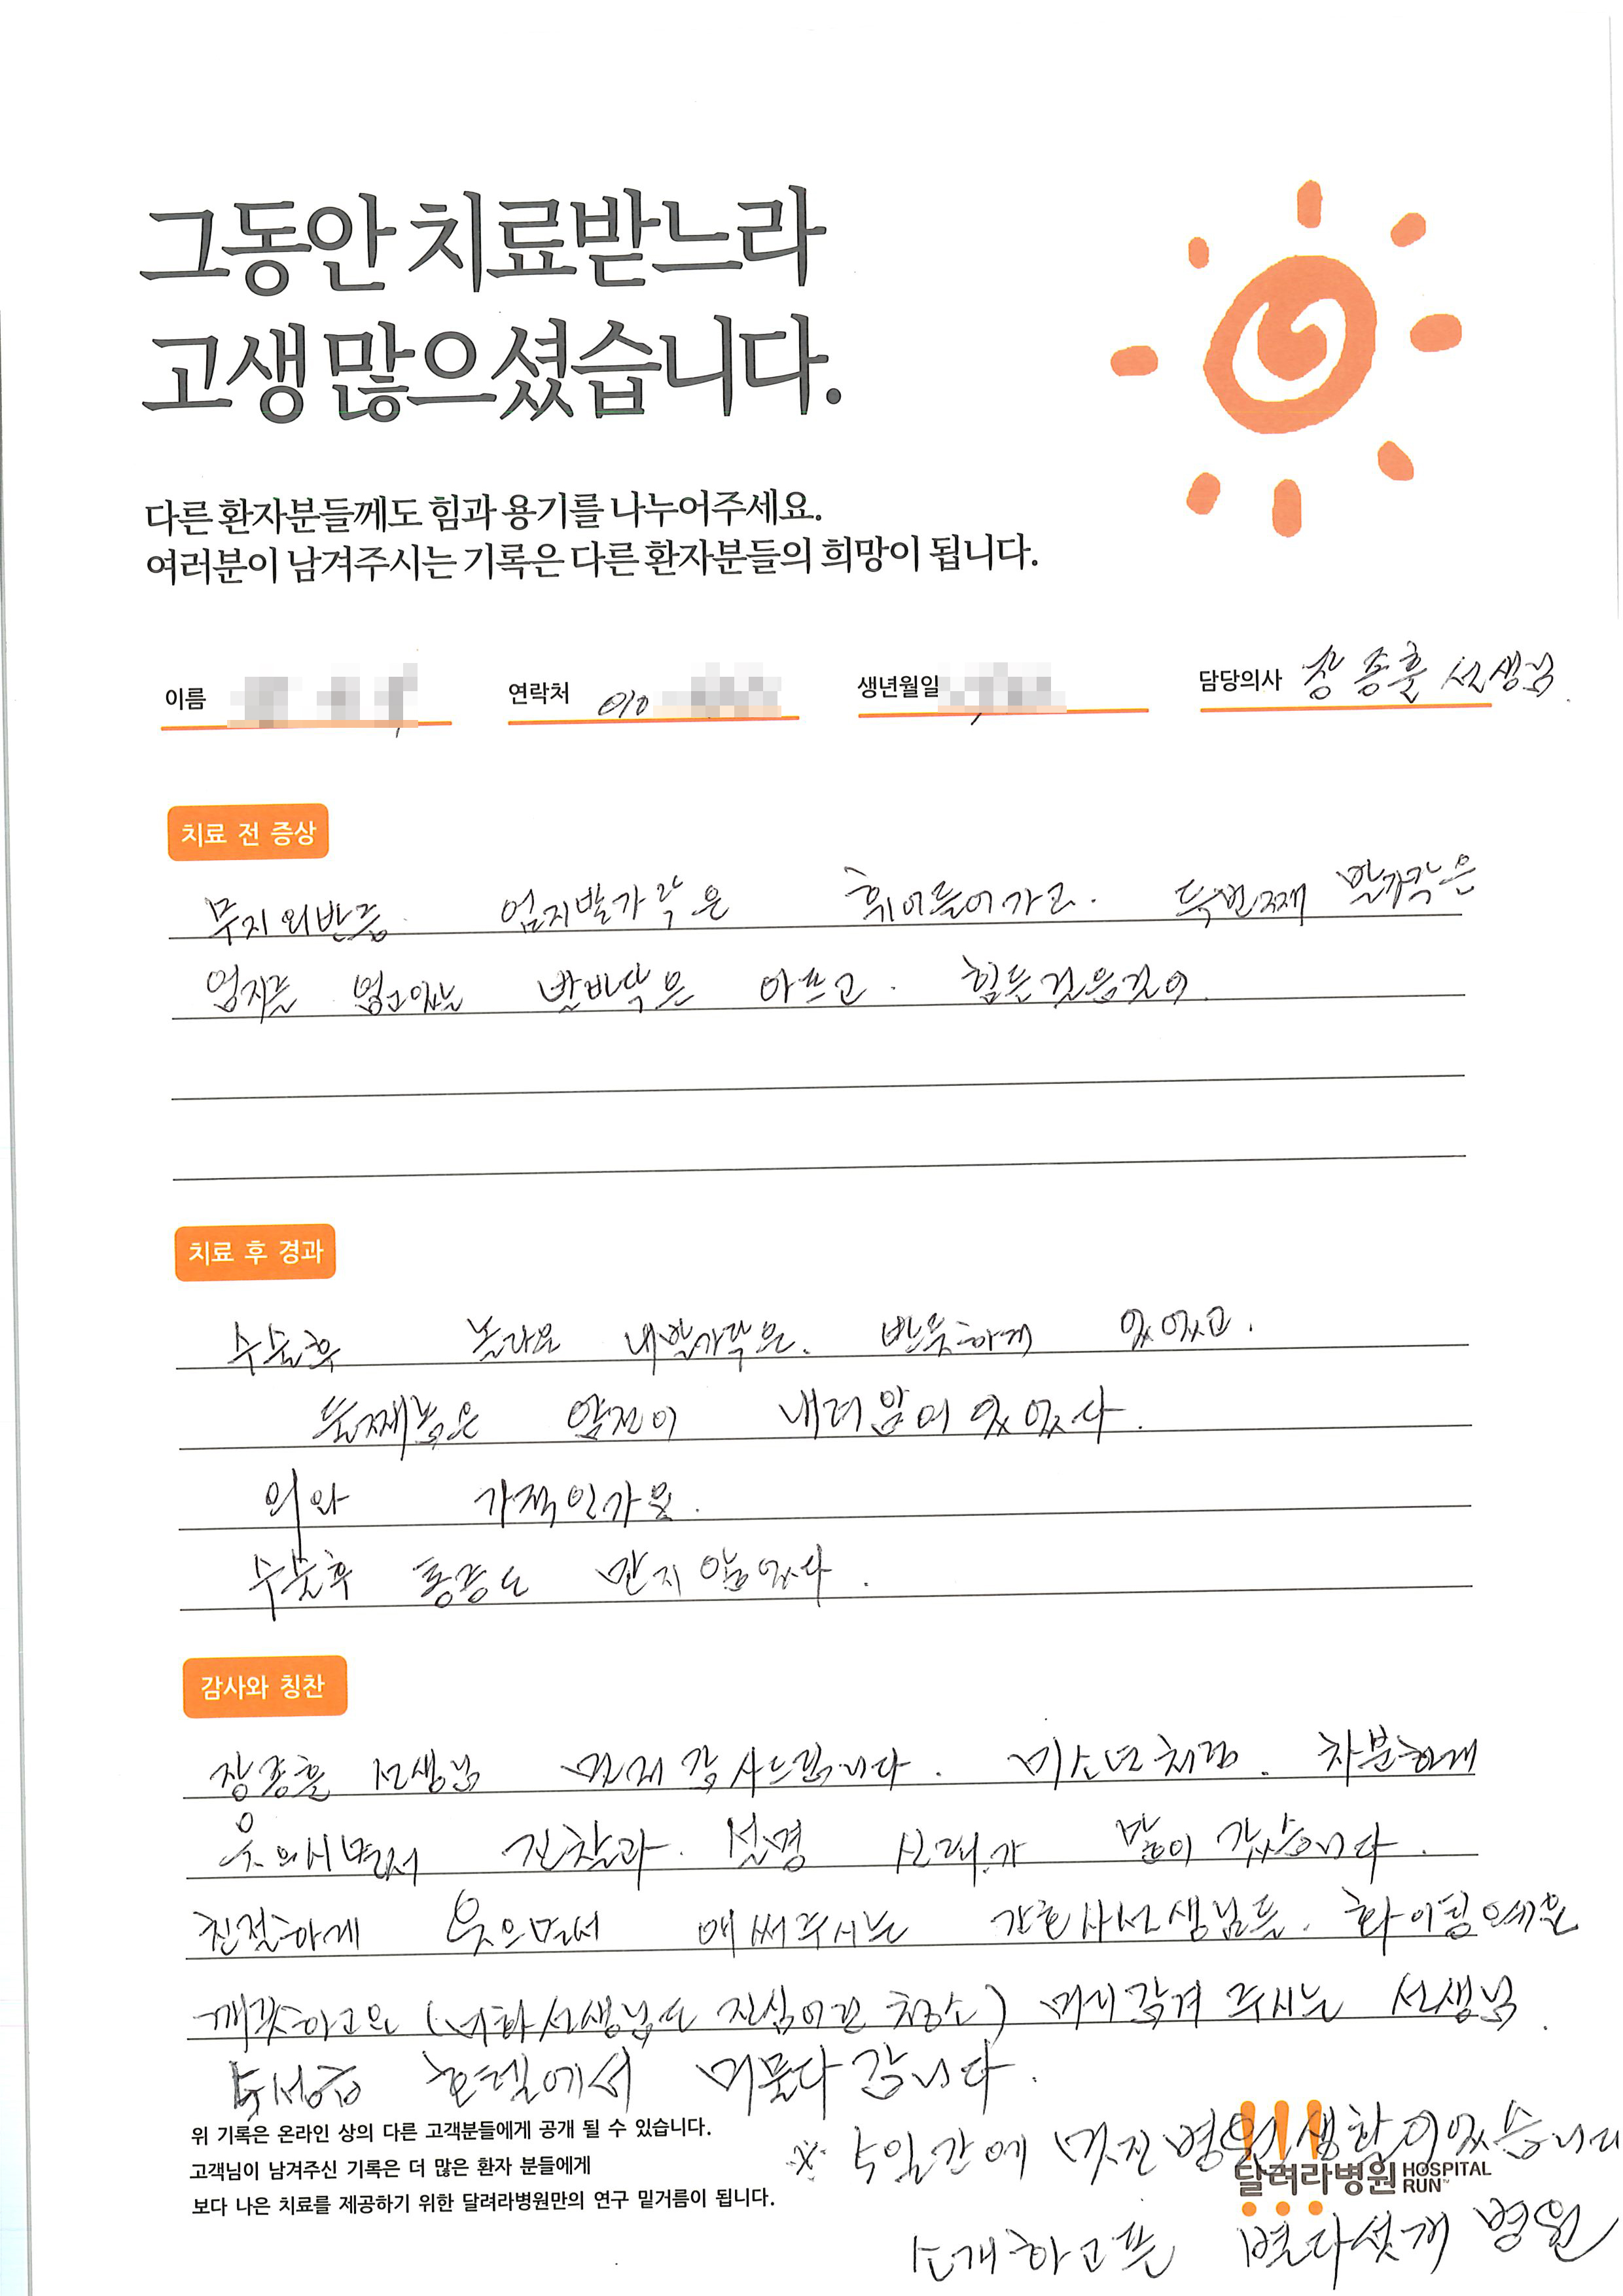 그동안 치료받느라
고생 많으셨습니다.
다른 환자분들께도 힘과 용기를 나누어주세요.
여러분이 남겨주시는 기록은 다른 환자분들의 희망이 됩니다.
이름 연락처 010 생년월일 담당의사 장종훈 선생님.
치료 전 증상
무지외반증. 엄지발가락은 휘어들어가고. 두번째 발가락은
엄지를 발바닥은 아프고. 힘든걸음걸이
치료 후 경과
수술후 놀라요 내발가락은. 반듯하게 있었고.
둘째 얌전이 내려앉어 있었다.
수술후 통증도 많지 않았다.
감사와 칭찬
장종훈 선생님 먼저 감사드립니다. 미소년처럼. 차분하게
웃으시면서 진찰과. 설명 신뢰가 많이 갔습니다.
친절하게 웃으면서 애써주시는 간호사선생님들. 화이팅
깨끗하고요 ( 선생님도 진심이란 청소) 주시는 선생님.
호텔에서 머물다 갑니다.
위 기록은 온라인 상의 다른 고객분들에게 공개 될 수 있습니다.
고객님이 남겨주신 기록은 더 많은 환자 분들에게
보다 나은 치료를 제공하기 위한 달려라병원만의 연구 밑거름이 됩니다.
※ 5일간에 멋진 병원생활이었습니다
달려라병원 HOSPITAL RUN
소개하고픈 별다섯개 병원